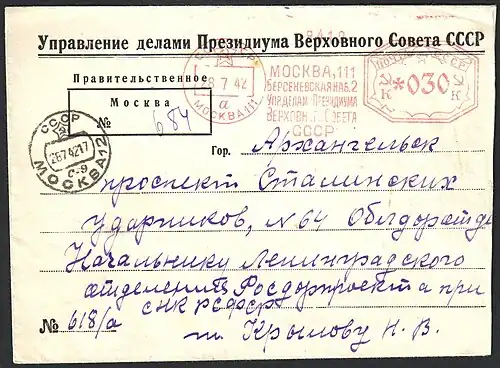 Управление делами Президиума Верховного Совета СССР
Правительственное
Москва
№ 684
СССР
2874217
МОСКВА 12
С-9
8.7.42
а
МОСКВА 111
МОСКВА, 111
БЕРСЕНЕВСКАЯ НАБ. 2
УПР. ДЕЛАМИ ПРЕЗИДИУМА
ВЕРХОВН. СОВЕТА
СССР
ПОЧТА СССР
К *030 К
Гор. Архангельск
проспект Сталинских
ударников, N 64 Облдоротдел
Начальнику Ленинградского
отделения Росдорпроекта при
СНК РСФСР
№ 618/а
т. Крылову Н. В.